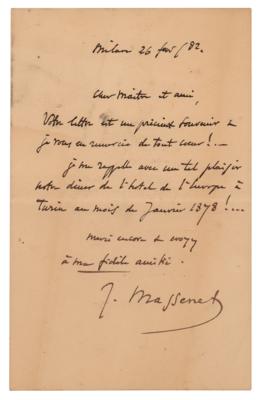 Milan 26 fév/82.
Cher Maître et ami,
Votre lettre est un précieux souvenir &
je vous en remercie de tout cœur!_
je me rappelle avec un tel plaisir
notre dîner de l'hôtel de l'Europe à
Turin au mois de Janvier 1878!...
merci encore & croyez
à ma fidèle amitié.
J. Massenet